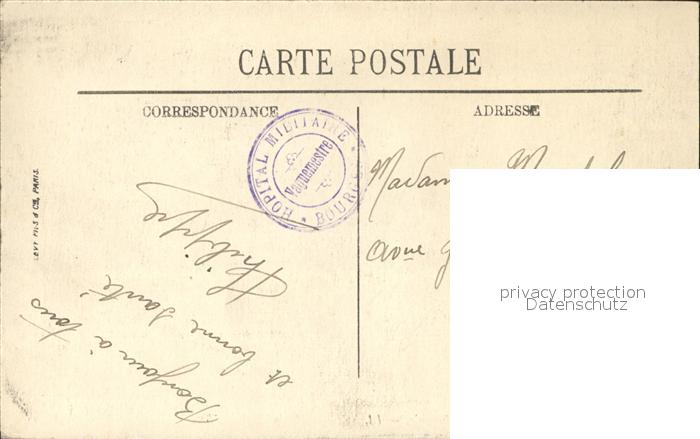 CARTE POSTALE
CORRESPONDANCE
ADRESSE
HOPITAL MILITAIRE * BOURGES *
Vaguemestre
LEVY FILS & Cie, PARIS.
Bonjour à tous
et bonne santé
Philippe
Madame
Avnue
privacy protection
Datenschutz